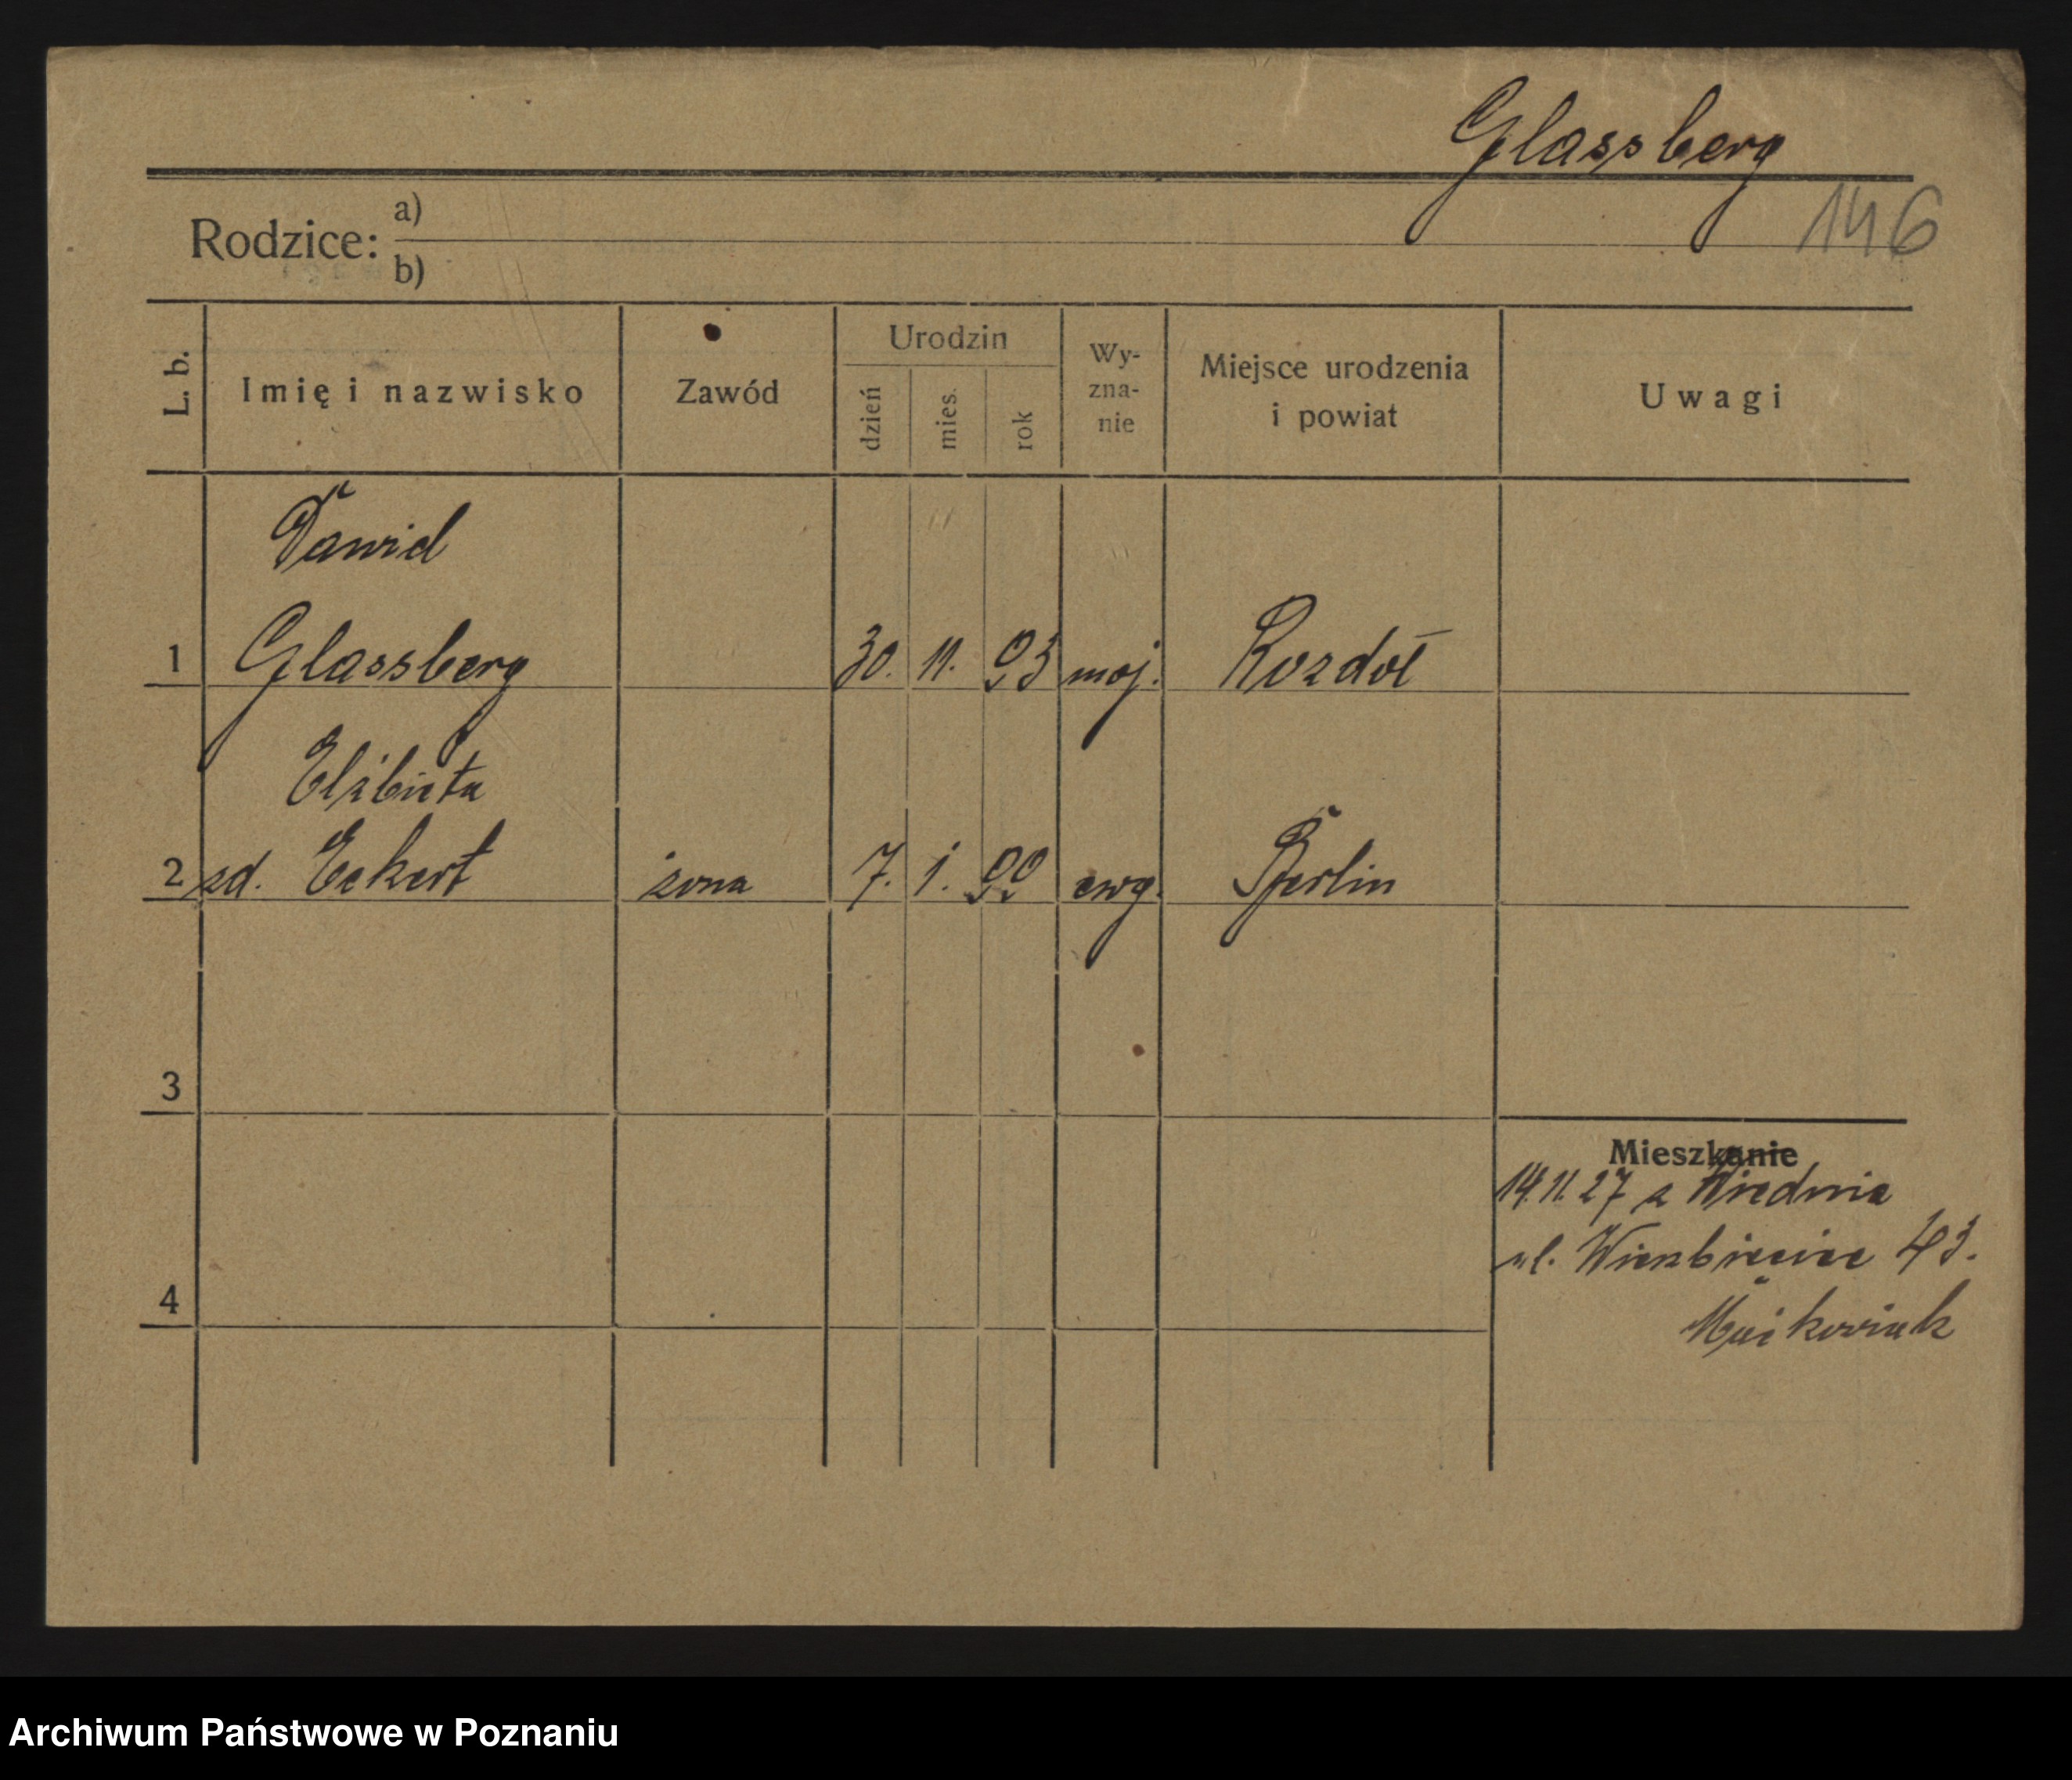 Glassberg
146
Rodzice: a)
b)
L. b. Imię i nazwisko Zawód Urodzin dzień mies. rok Wy-zna-nie Miejsce urodzenia i powiat Uwagi
Dawid
1 Glassberg 30. 11. 93 moj. Rozdół
Elżbieta
2 zd. Eckert żona 7. 1. 99 ewg. Berlin
3
Mieszkanie
14.11.27 z Wiednia
ul. Wierzbięcice 43.
4
Archiwum Państwowe w Poznaniu